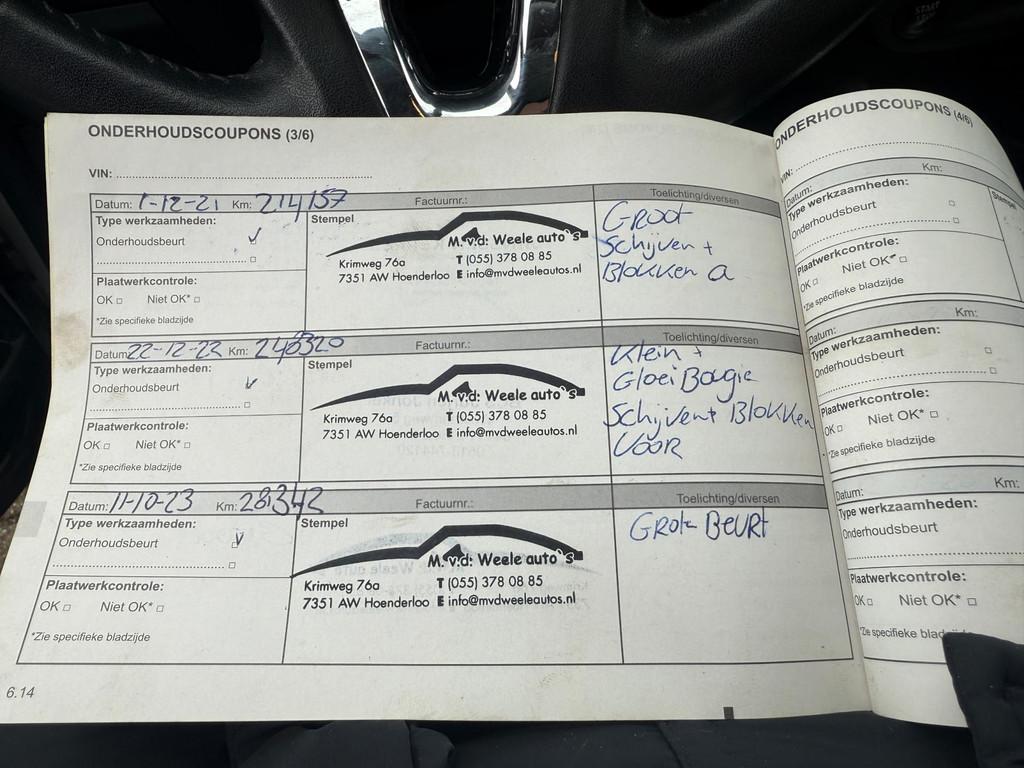 ONDERHOUDSCOUPONS (3/6)
VIN:
Datum: 1-12-21 Km: 214157 Factuurnr.: Toelichting/diversen
Type werkzaamheden:
Onderhoudsbeurt
Plaatwerkcontrole:
OK Niet OK*
*Zie specifieke bladzijde
Stempel
M.v.d: Weele auto's
Krimweg 76a T (055) 378 08 85
7351 AW Hoenderloo E info@mvdweeleautos.nl
Groot
Schijven +
Blokken a
Datum: 22-12-22 Km: Factuurnr.: Toelichting/diversen
Type werkzaamheden:
Onderhoudsbeurt
Plaatwerkcontrole:
OK Niet OK*
*Zie specifieke bladzijde
Stempel
M.v.d: Weele auto's
Krimweg 76a T (055) 378 08 85
7351 AW Hoenderloo E info@mvdweeleautos.nl
Klein +
Gloei Bougie
Schijven + Blokken
Voor
Datum: 11-10-23 Km: Factuurnr.: Toelichting/diversen
Type werkzaamheden:
Onderhoudsbeurt
Plaatwerkcontrole:
OK Niet OK*
*Zie specifieke bladzijde
Stempel
M.v.d: Weele auto's
Krimweg 76a T (055) 378 08 85
7351 AW Hoenderloo E info@mvdweeleautos.nl
Grote Beurt
6.14
ONDERHOUDSCOUPONS (4/6)
VIN:
Datum: Km:
Type werkzaamheden:
Onderhoudsbeurt
Stempel
Plaatwerkcontrole:
OK Niet OK*
*Zie specifieke bladzijde
Datum: Km:
Type werkzaamheden:
Onderhoudsbeurt
Plaatwerkcontrole:
OK Niet OK*
*Zie specifieke bladzijde
Datum: Km:
Type werkzaamheden:
Onderhoudsbeurt
Plaatwerkcontrole:
OK Niet OK*
*Zie specifieke